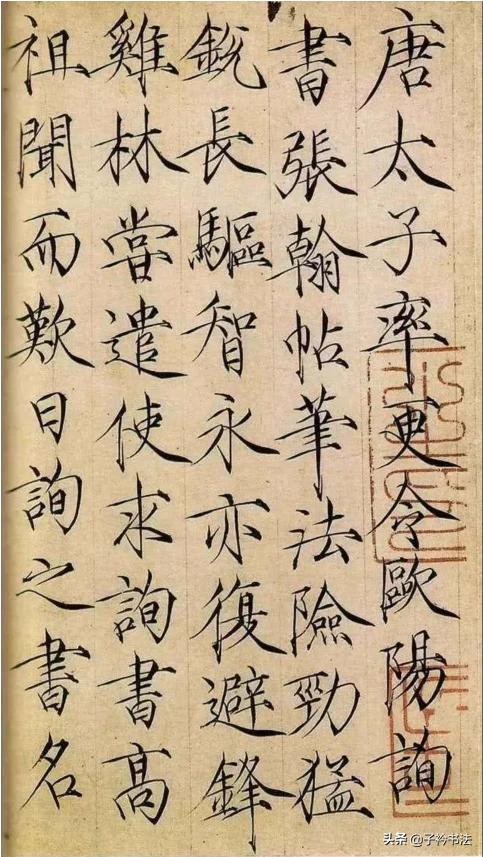 唐太子率更令歐陽詢
書張翰帖筆法險勁猛
銳長驅智永亦復避鋒
雞林嘗遣使求詢書高
祖聞而歎曰詢之書名
头条@子衿书法